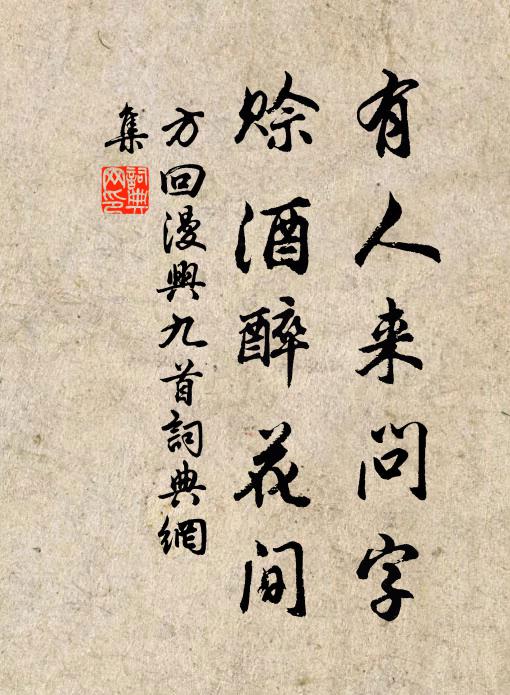 有人来问字
赊酒醉花间
方回漫興九首詞典網
集
詞典网印